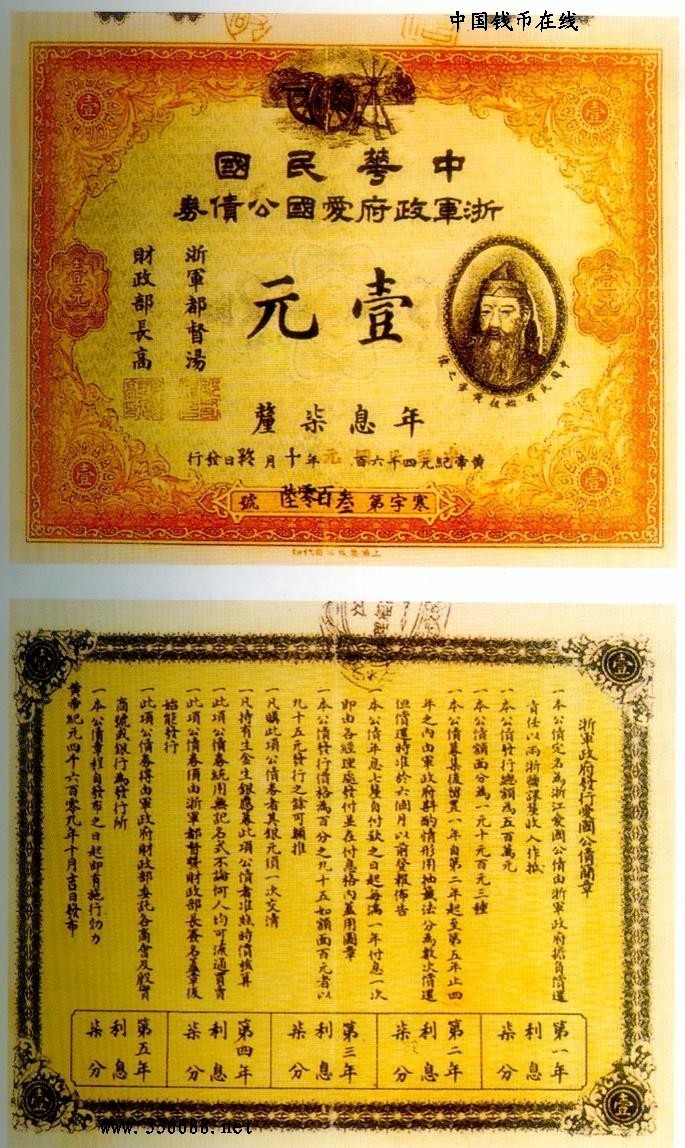 中国钱币在线
中華民國
浙軍政府愛國公債券
壹元
浙軍都督湯
財政部長高
年息柒釐
中國民族始祖黃帝之像
黃帝紀元四千六百 元年十月 日發行
寒字第叁百零陸號
壹
壹
壹元
壹元
壹
壹
浙軍政府發行愛國公債簡章
一本公債定名為浙江愛國公債由浙軍政府擔負償還
責任以兩浙鹽課釐收入作抵
一本公債發行總額為五百萬元
一本公債額面分為一元十元百元三種
一本公債募集後留置一年自第二年起至第五年止四
年之內由軍政府斟酌情形用抽籤法分為數次償還
但償還時准於六個月以前登報佈告
一本公債年息七釐自付款之日起每滿一年付息一次
即由各經理處發付並在付息格內蓋用圖章
一本公債發行價格為百分之九十五如額面百元者以
九十五元發行之餘可類推
一凡購此項公債券者其銀元須一次交清
一凡持有生金生銀應募此項公債者准照時價核算
一此項公債券統用無記名式不論何人均可流通買賣
一此項公債券須由浙軍都督暨財政部長簽名蓋章後
始能發行
一此項公債券得由軍政府財政部委託各商會及殷實
商號或銀行為發行所
一本公債章程自發布之日起即有施行効力
黃帝紀元四千六百零九年十月吉日發布
第一年
利息
柒分
第二年
利息
柒分
第三年
利息
柒分
第四年
利息
柒分
第五年
利息
柒分
壹
壹
壹
壹